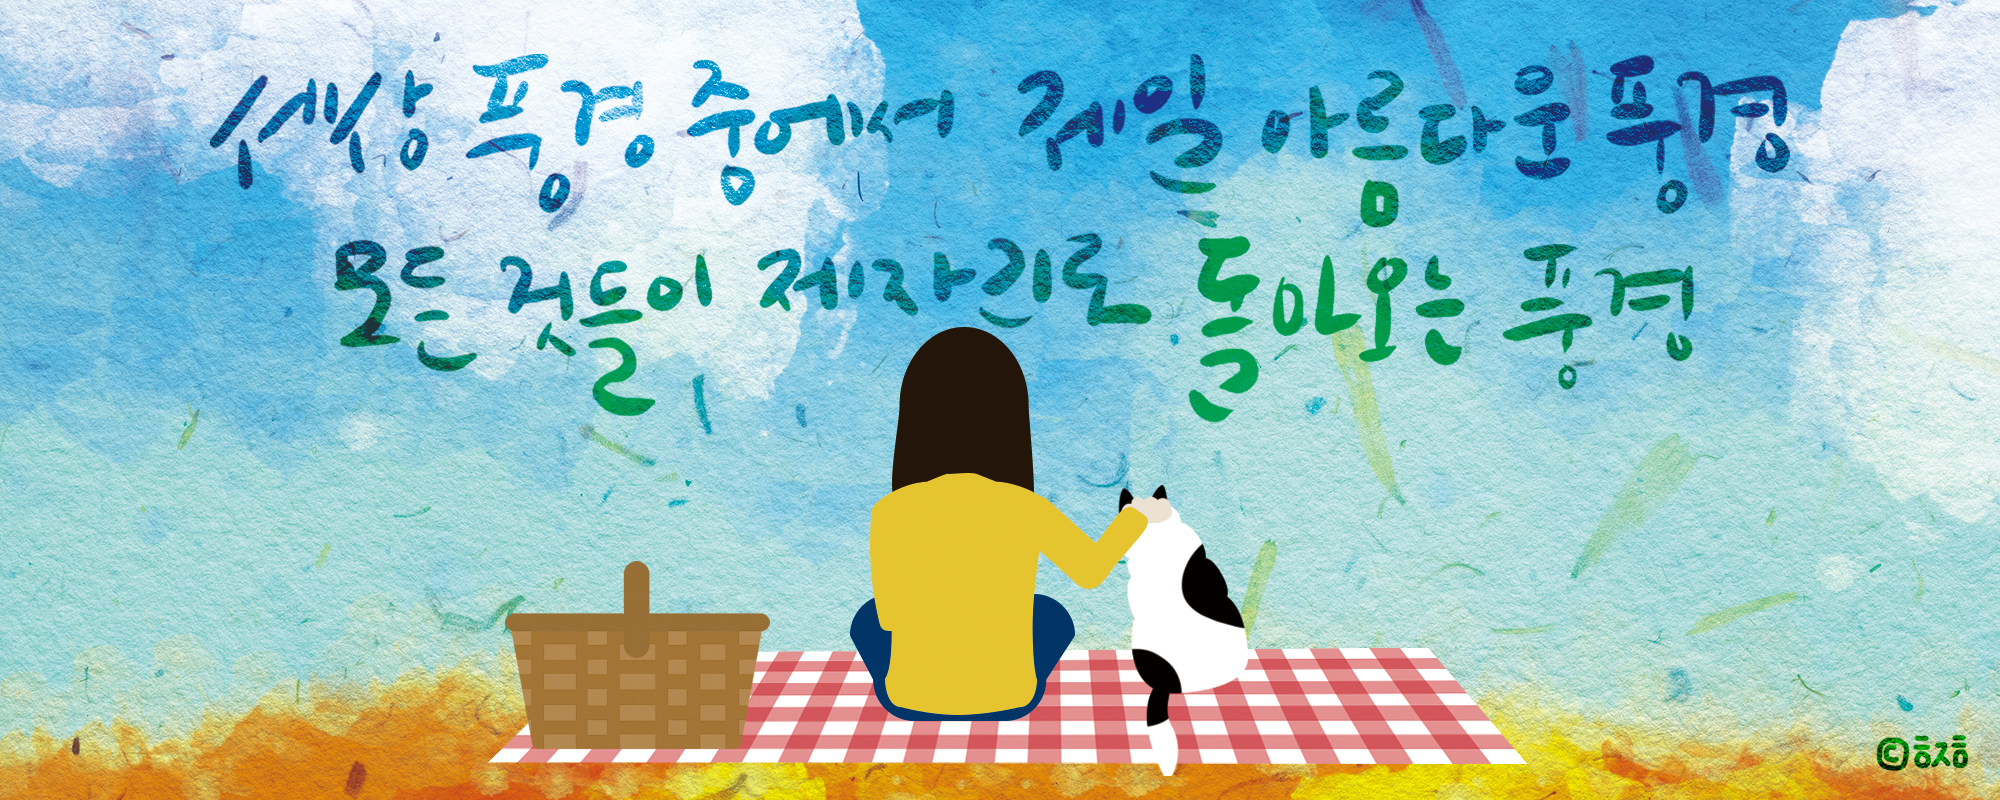 세상 풍경 중에서 제일 아름다운 풍경
모든 것들이 제자리로 돌아오는 풍경